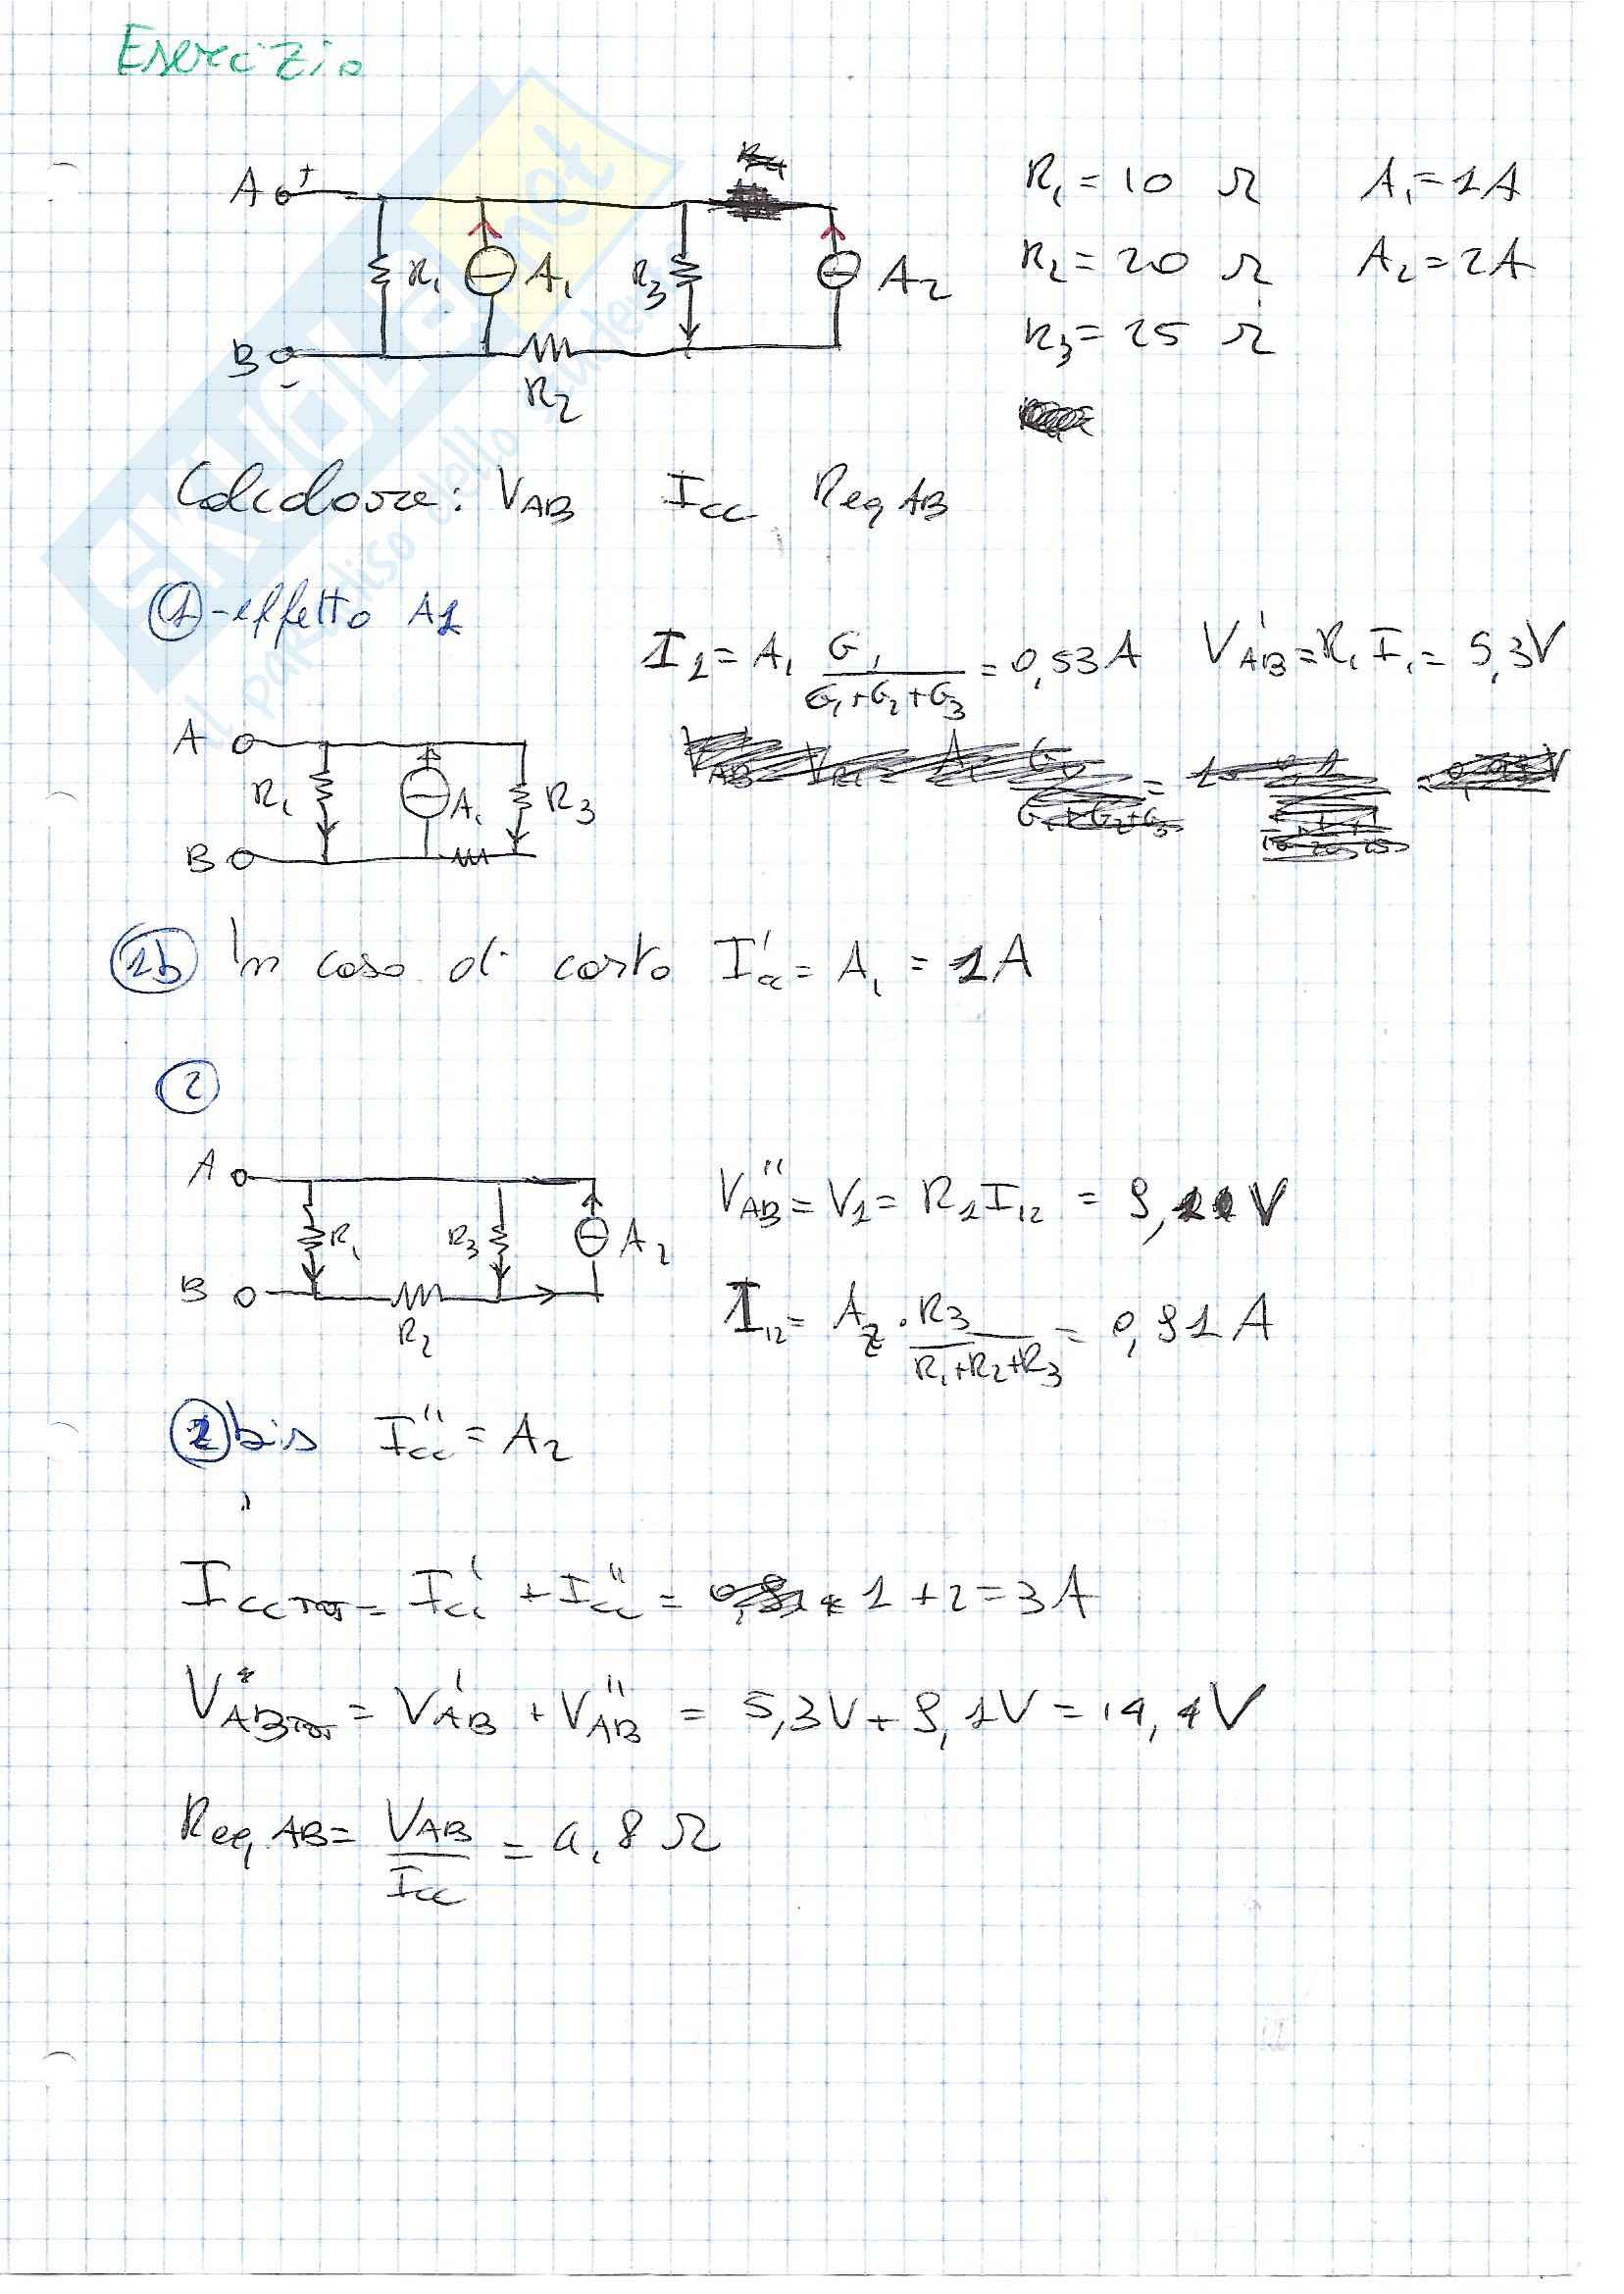 Esercizio
A + R₁ A₁ R₃ A₂
B - R₂
R₁ = 10 Ω A₁ = 1A
R₂ = 20 Ω A₂ = 2A
R₃ = 25 Ω
Calcolare: V_AB I_cc Req AB
① - effetto A1
I₁ = A₁ G₁/(G₁+G₂+G₃) = 0,53 A V'_AB = R₁ I₁ = 5,3V
A R₁ A₁ R₃
B
①b In caso di corto I'cc = A₁ = 1A
②
A R₁ R₃ A₂
B R₂
V''_AB = V₁ = R₁ I₁₂ = 9,1 V
I₁₂ = A₂ · R₃/(R₁+R₂+R₃) = 0,91 A
② bis I''cc = A₂
I cc TOT = I'cc + I''cc = 1 + 2 = 3 A
V_AB TOT = V'_AB + V''_AB = 5,3V + 9,1V = 14,4V
Req AB = V_AB/I_cc = 4,8 Ω
SKUOLA.net
il paradiso dello studente